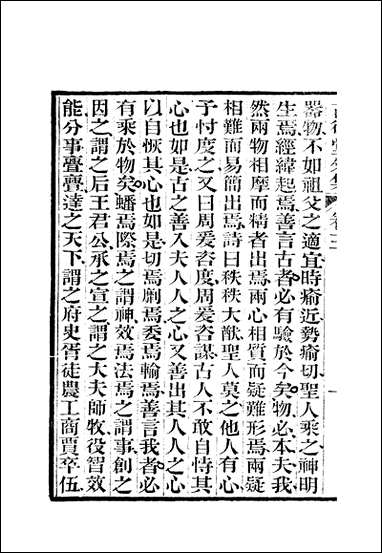 古微堂外集　卷三　一
器物不如祖父之適宜時瘉近勢瘉切聖人乘之神明
生焉經緯起焉善言古者必有驗於今矣物必本夫我
然兩物相摩而精者出焉兩心相質而疑難形焉兩疑
相難而易簡出焉詩曰秩秩大猷聖人莫之他人有心
予忖度之又曰周爰咨度周爰咨謀古人不敢自恃其
心也如是古之善入夫人人之心又善出其人人之心
以自恢其心也如是切焉劘焉委焉輸焉善言我者必
有乘於物矣蟠焉際焉之謂神效焉法焉之謂事創之
因之謂之后王君公承之宣之謂之大夫師牧役智效
能分事亹亹達之天下謂之府史胥徒農工商賈卒伍